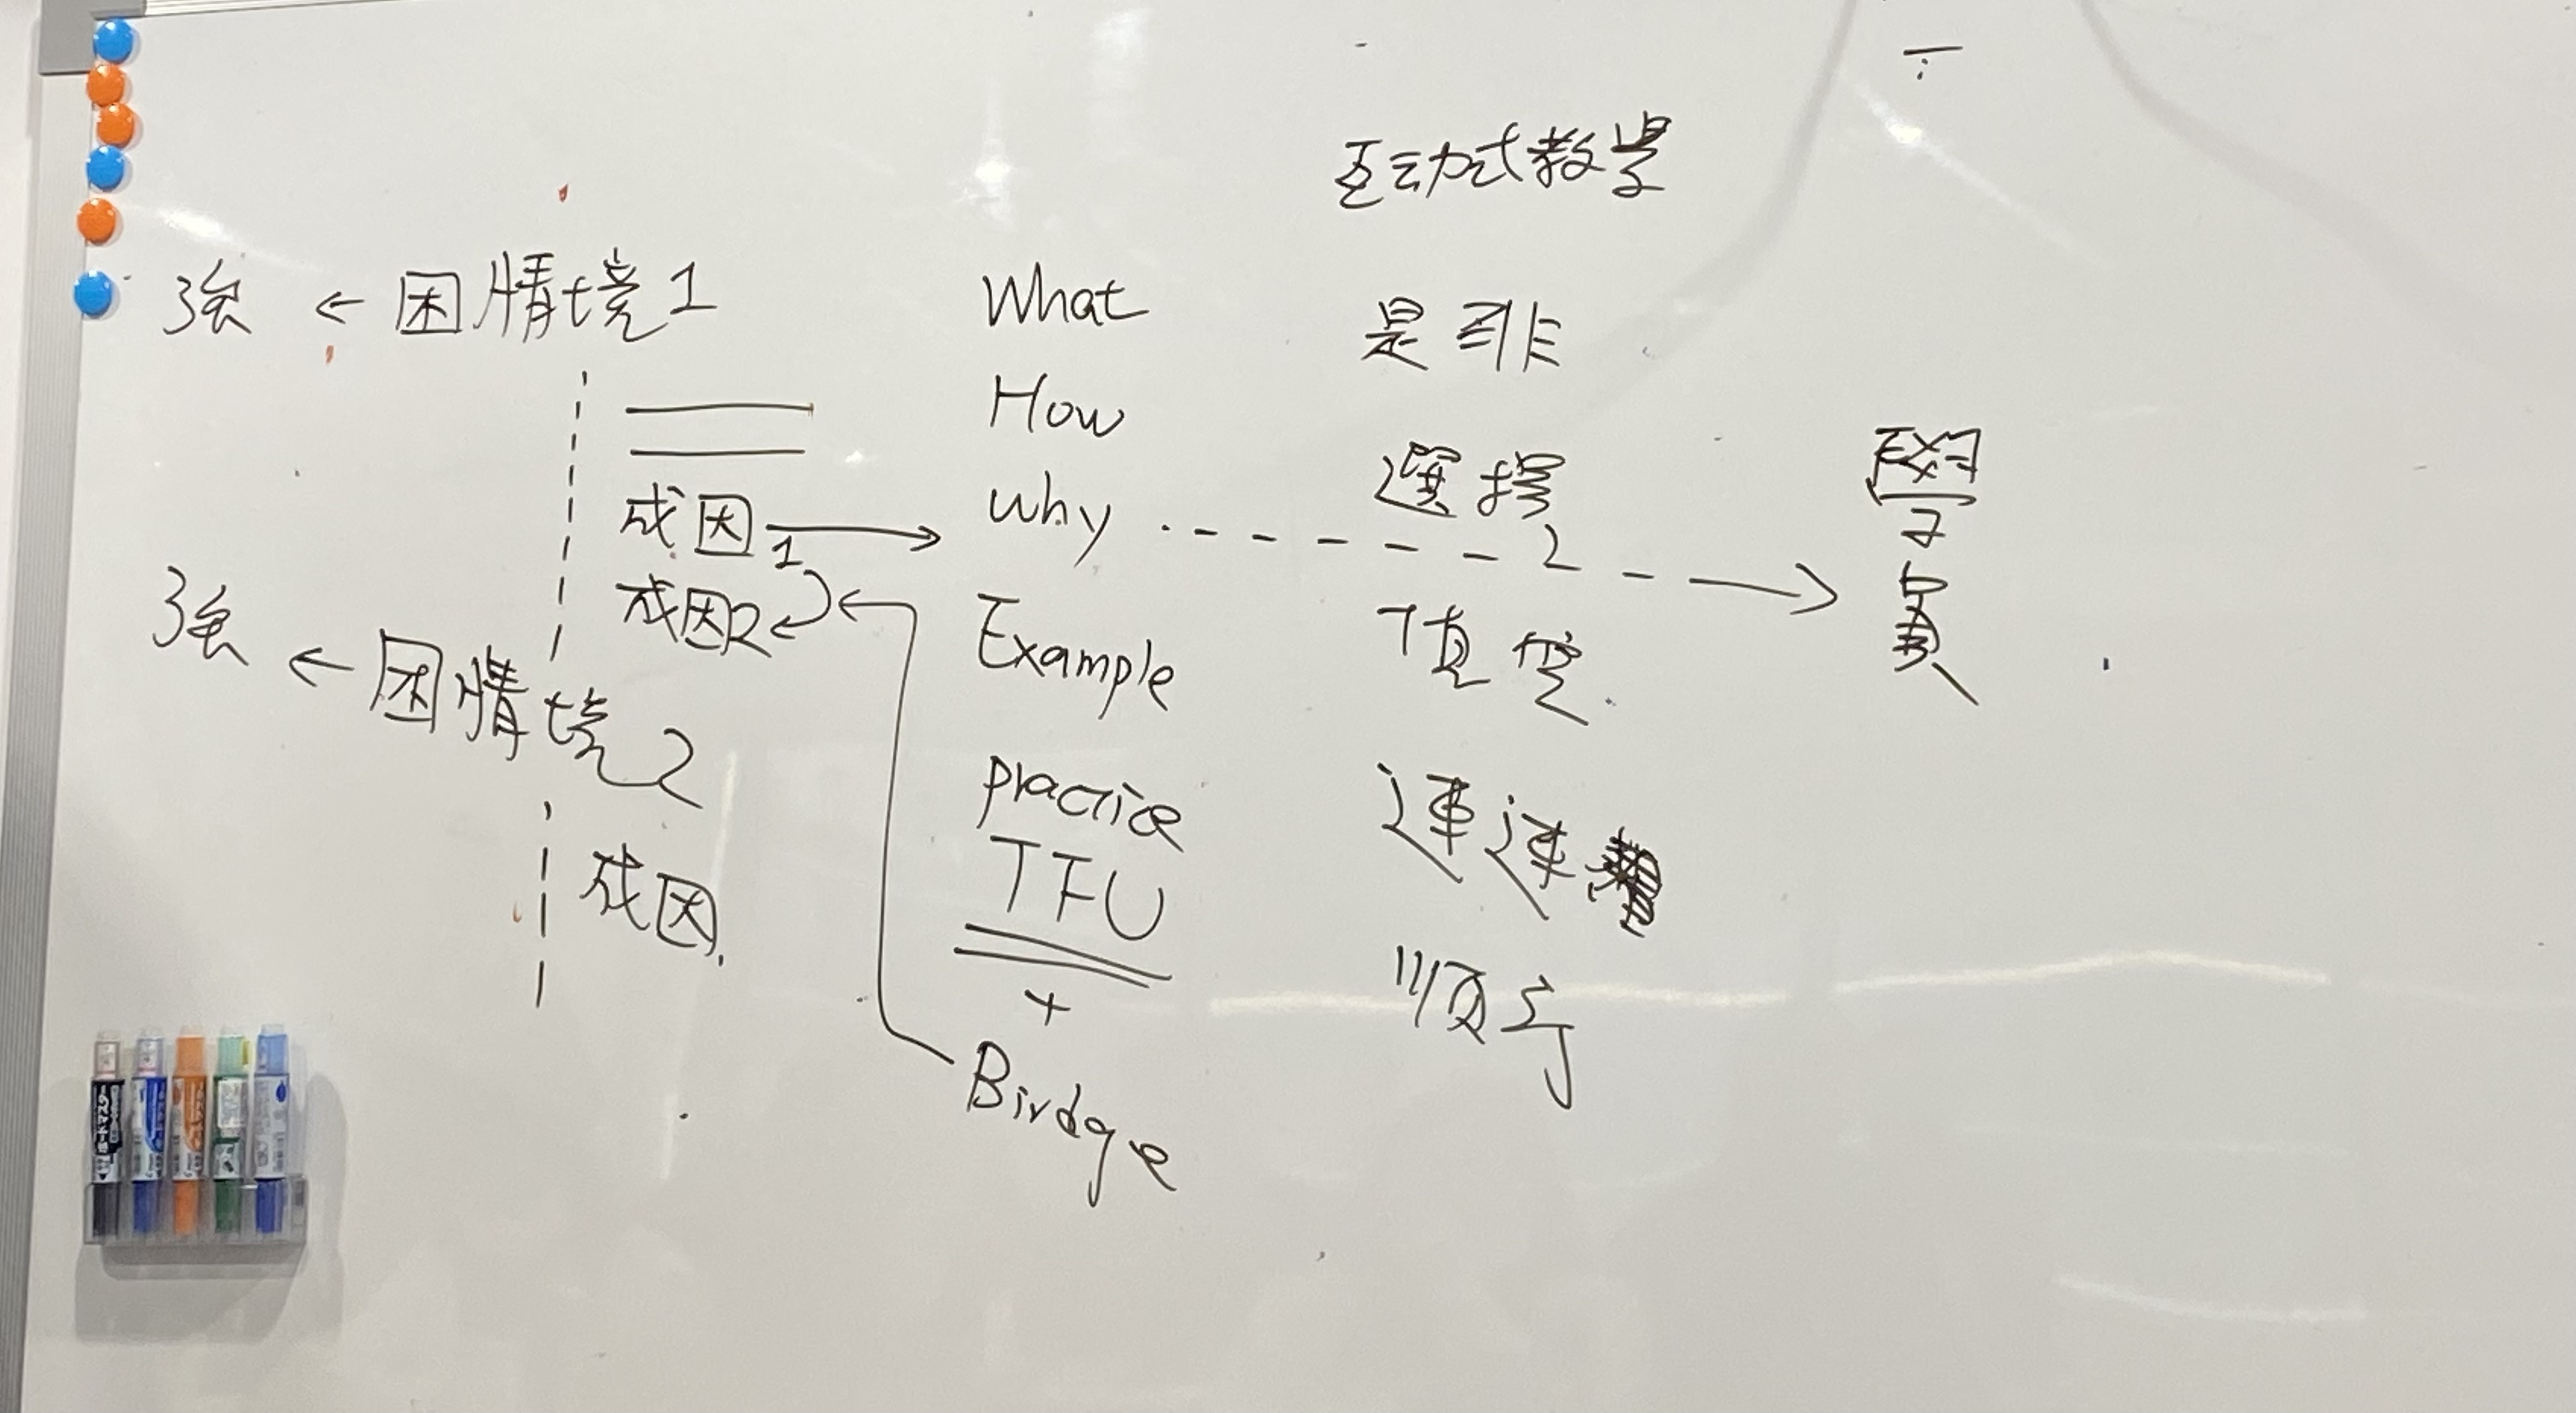 互动式教学
強 ← 困情境1
成因1 →
成因2
強 ← 困情境2
成因
What
How
why
Example
practice
TFU
+
Birdge
是非
選擇
填空
連連看
順序
學員